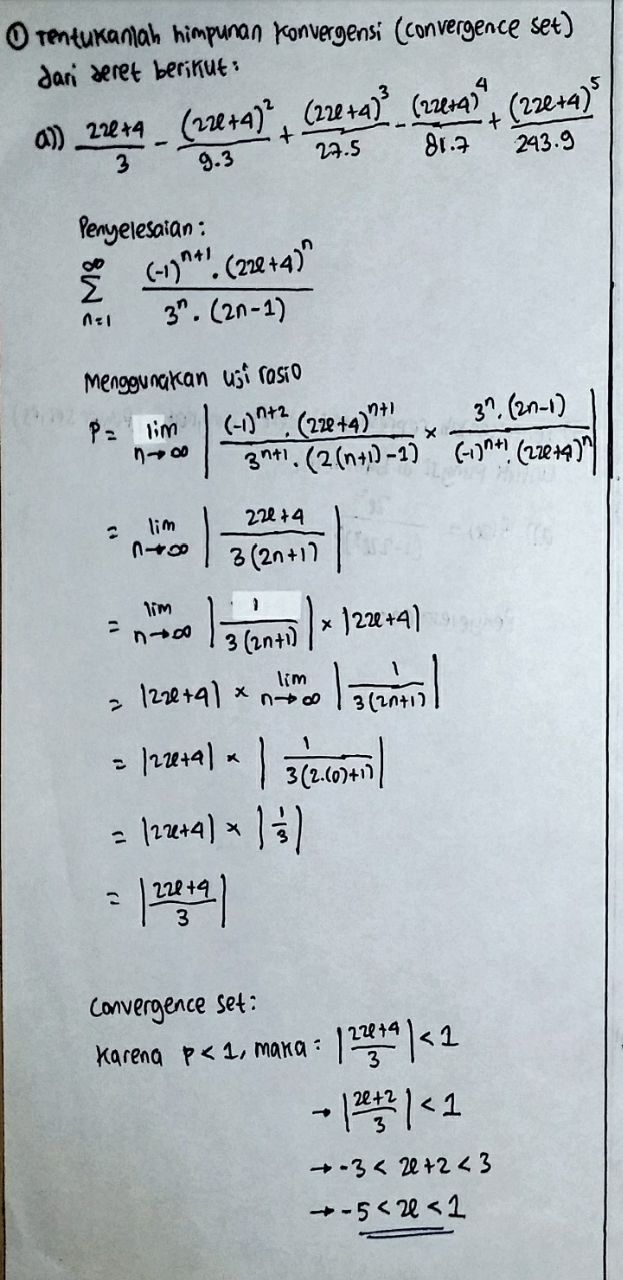 ① Tentukanlah himpunan konvergensi (convergence set)
dari deret berikut:
a)) (2x+4)/3 - (2x+4)²/(9.3) + (2x+4)³/(27.5) - (2x+4)⁴/(81.7) + (2x+4)⁵/(243.9)
Penyelesaian:
∞ Σ n=1 ((-1)ⁿ⁺¹ . (2x+4)ⁿ)/(3ⁿ . (2n-1))
Menggunakan uji rasio
P = lim n→∞ |((-1)ⁿ⁺² . (2x+4)ⁿ⁺¹)/(3ⁿ⁺¹ . (2(n+1)-1)) × (3ⁿ . (2n-1))/((-1)ⁿ⁺¹ . (2x+4)ⁿ)|
= lim n→∞ |(2x+4)/(3(2n+1))|
= lim n→∞ |1/(3(2n+1))| × |2x+4|
= |2x+4| × lim n→∞ |1/(3(2n+1))|
= |2x+4| × |1/(3(2.(0)+1))|
= |2x+4| × |1/3|
= |(2x+4)/3|
Convergence set:
Karena P < 1, maka: |(2x+4)/3| < 1
→ |(x+2)/3| < 1
→ -3 < x+2 < 3
→ -5 < x < 1